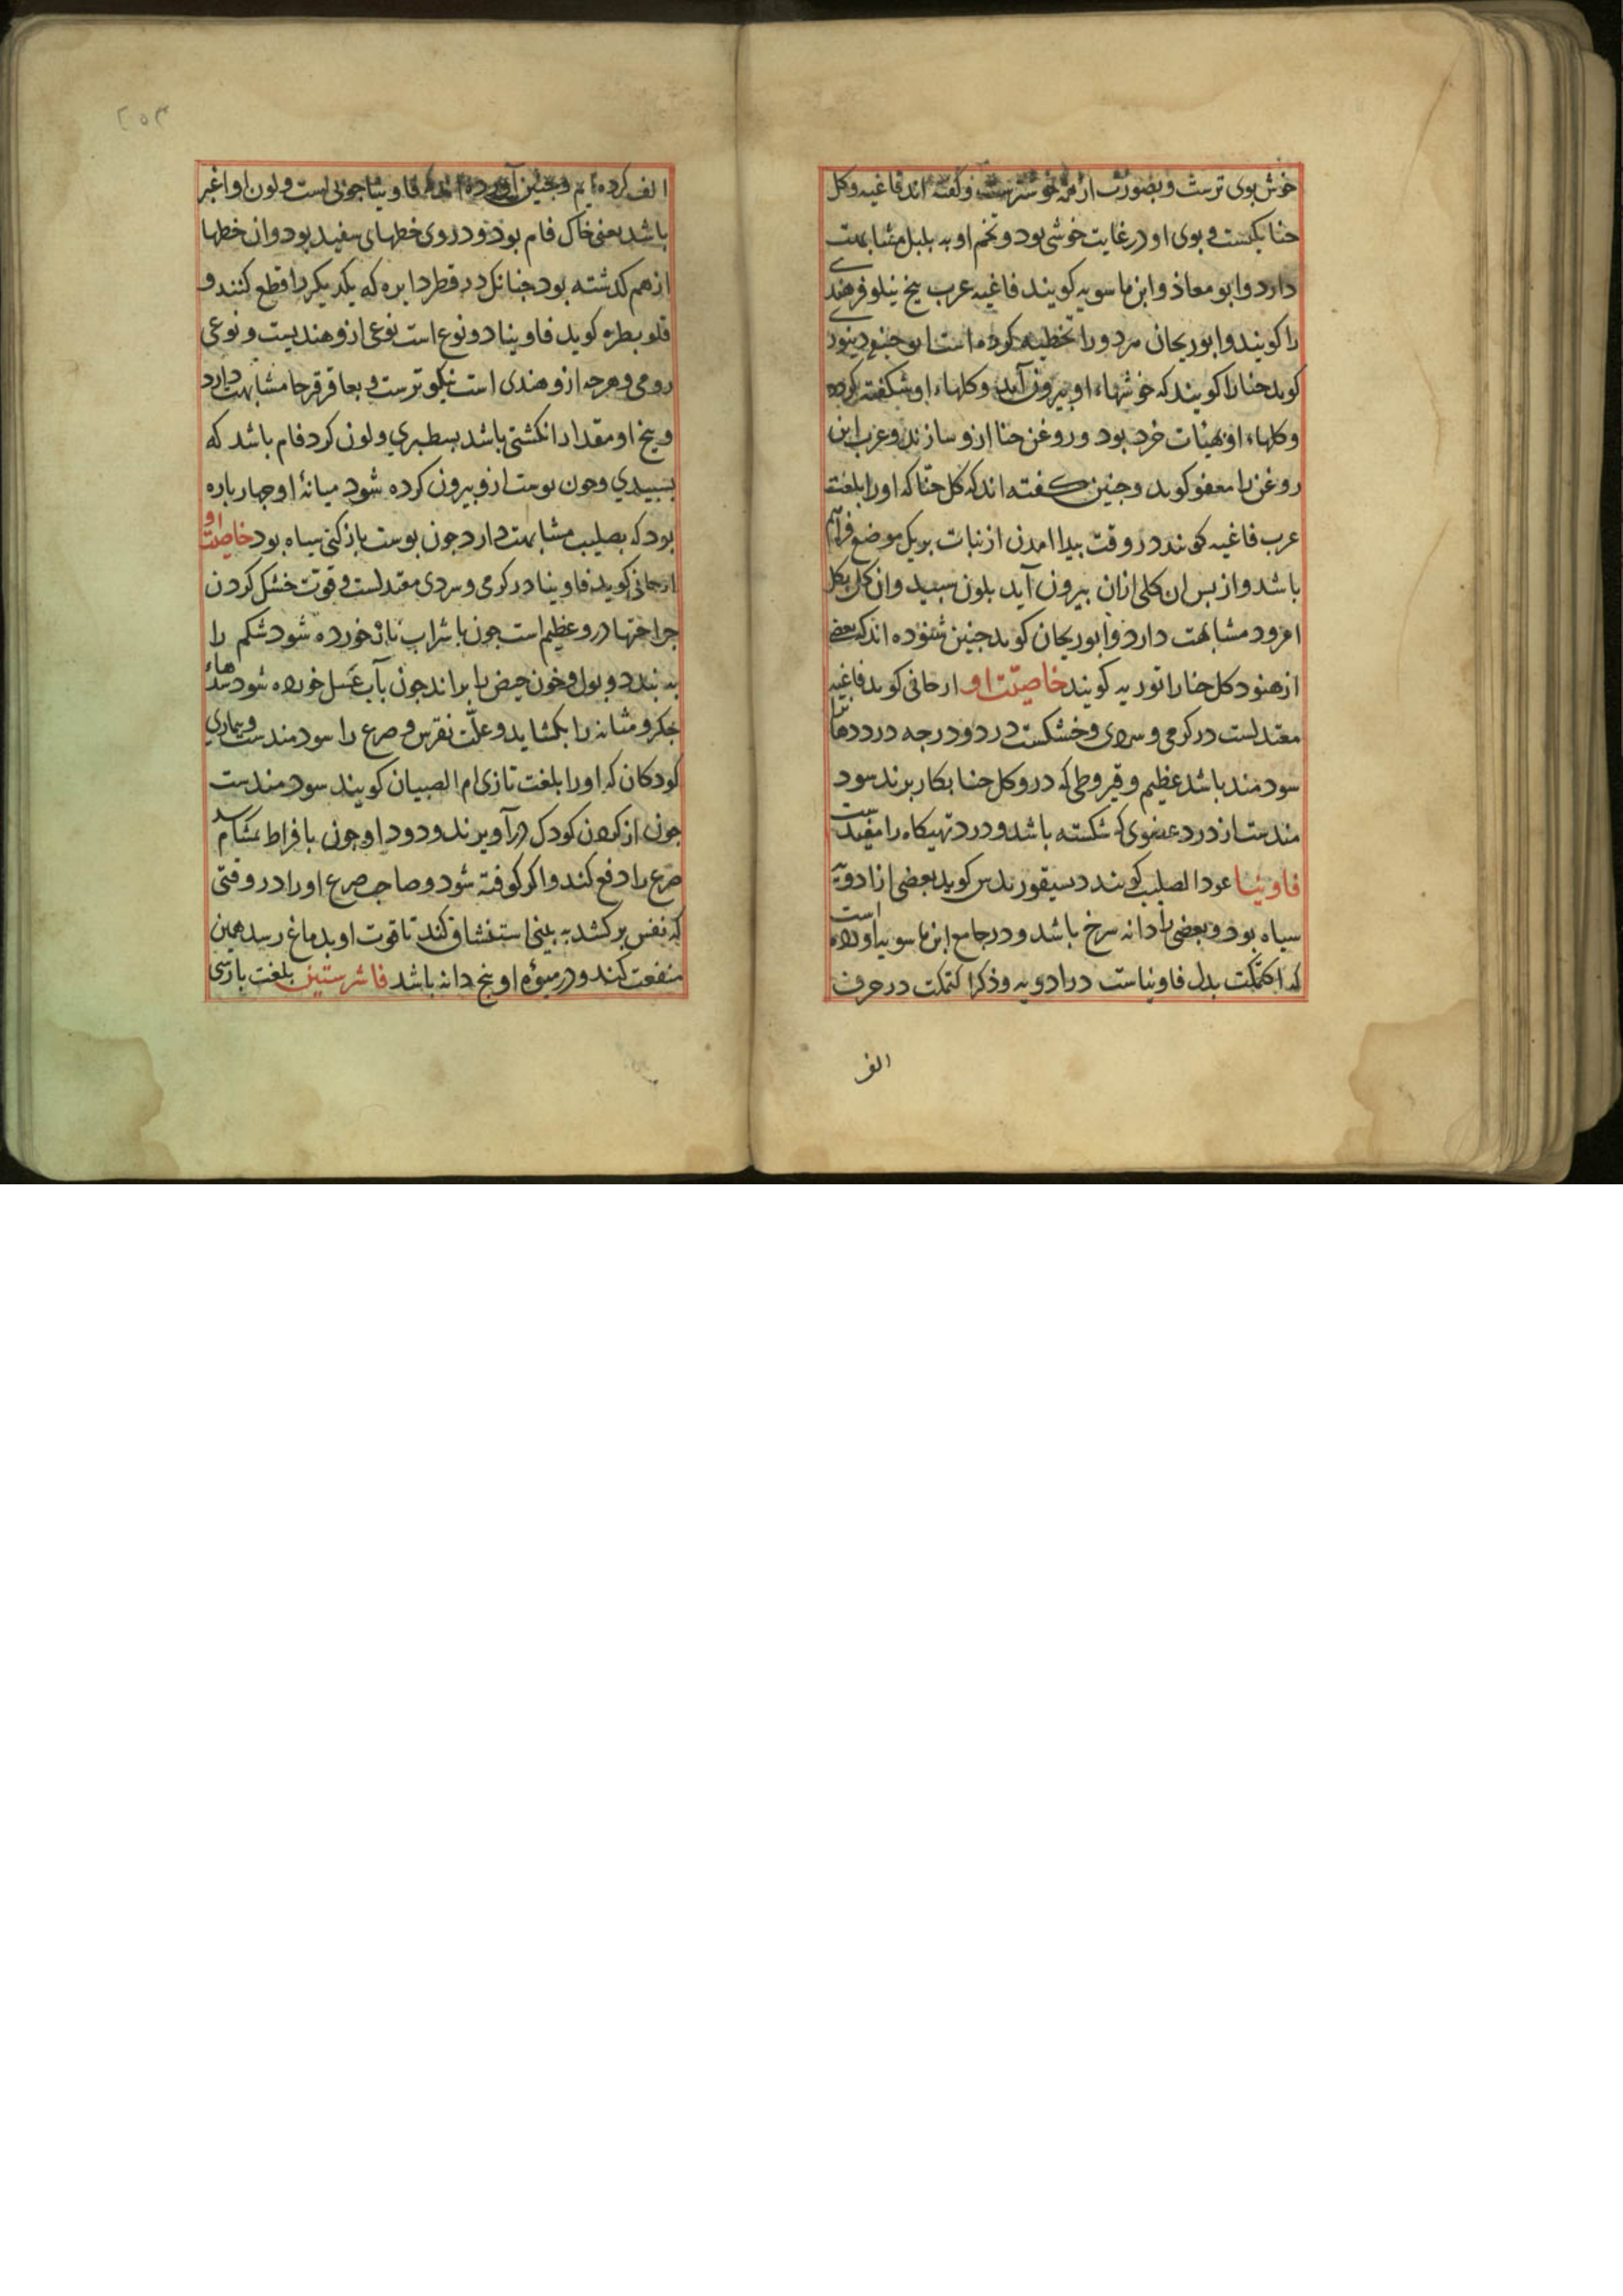 خوش بوی ترست و بصورت از همه خوشترست و گفته اند فاغیه و کل
حنا یکیست و بوی او در غایت خوشی بود و تخم او به بلبل مشابهت
دارد و ابو معاذ و ابن ماسویه کویند فاغیه عرب بیخ نیلوفر هندی
را کویند و ابوریحان مردو را تخطیه کرده است ابو حنیفه دینوری
کوید حنا را کویند که خوشهاء او بیرون آید و کلهاء او شکفته کرده
و کلهاء او بهینات خرد بود و روغن حنا ازو سازند و عرب این
روغن را معفو کوید و جنین کفته اند که کل حنّا که او را بلغت
عرب فاغیه کویند در وقت بیدا امدن از نبات بر یک موضع فراهم
باشد و از بس ان کلی ازان بیرون آید بلون سبید و ان کل بکل
امرود مشابهت دارد و ابوریحان کوید جنین شنوده اند که بعضی
از هنود کل حنا را توریه کویند خاصیّت او ارجانی کوید فاغیه
معتدلست در کرمی و سردی و خشکست در دو درجه در دردها
سودمند باشد عظیم و قیروطی که درو کل حنا بکار برند سود
مندست از درد عضوی که شکسته باشد و درد تهیکاه را مفیدست
فاونیا عود الصلیب کویند دیسقوریدس کوید بعضی از ادویه
سیاه بود و بعضی را دانه سرخ باشد و در جامع ابن ماسویه اورده است
که اکتمکت بدل فاونیاست در ادویه و ذکر اکتمکت در حرف
الف
۲۵۳
الف کرده ایم و جنین آورده اند که فاونیا جوبی است و لون او اغبر
باشد یعنی خاک فام بود و در وی خطهای سفید بود و ان خطها
از هم کذشته بود جنانک در قطر دایره که یکدیکر را قطع کنند و
قلوبطره کوید فاونیا دو نوع است نوعی ازو هندیست و نوعی
رومی و هرجه ازو هندی است نیکوترست و بعاقرقرحا مشابهت دارد
و بیخ او مقدار انکشتی باشد بسطبری و لون کرد فام باشد که
بسبیدی و جون بوست ازو بیرون کرده شود میانهٔ او جهار باره
بود که بصلیب مشابهت دارد جون بوست باز کنی سیاه بود خاصیت او
ارجانی کوید فاونیا در کرمی و سردی معتدلست و قوت خشک کردن
جراحتها درو عظیم است جون با شراب ناب خورده شود شکم را
به بندد و بول و خون حیض را براند جون بآب عسل خورده شود سدّهاء
جکر و مثانه را بکشاید و علّت نقرس و صرع را سودمندست و بیماری
کودکان که او را بلغت تازی ام الصبیان کویند سودمندست
جون از کردن کودک در آویزند و دود او جون بافراط بمشام رسد
صرع را دفع کند و اکر کوفته شود و صاحب صرع او را در وقتی
که نفس برکشد به بینی استنشاق کند تا قوت او بدماغ رسد همین
منفعت کند و در میوهٔ او بنج دانه باشد فاشرستین بلغت بارسی